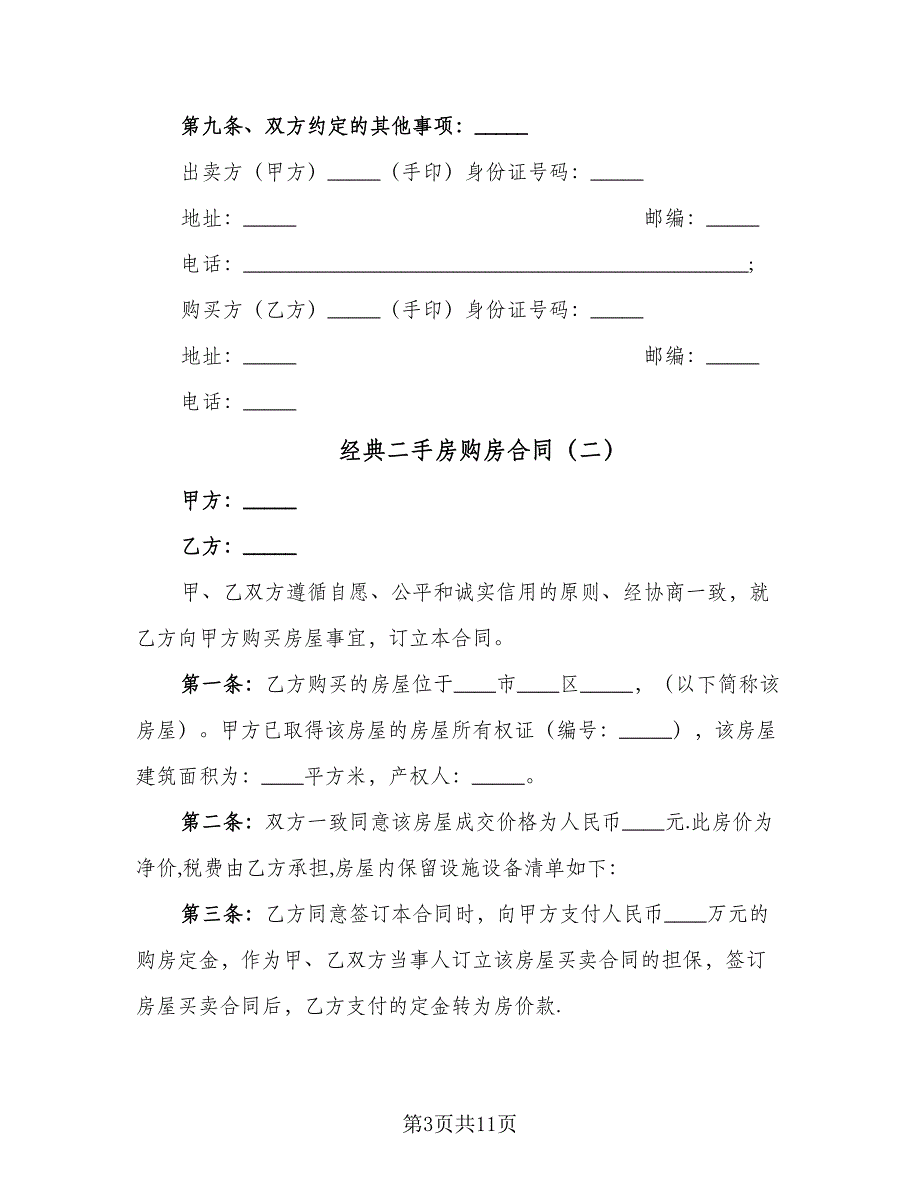 第九条、双方约定的其他事项：_____
出卖方（甲方）_____（手印）身份证号码：_____
地址：_____ 邮编：_____
电话：_______________________________________________;
购买方（乙方）_____（手印）身份证号码：_____
地址：_____ 邮编：_____
电话：_____
经典二手房购房合同（二）
甲方：_____
乙方：_____
甲、乙双方遵循自愿、公平和诚实信用的原则、经协商一致，就
乙方向甲方购买房屋事宜，订立本合同。
第一条：乙方购买的房屋位于____市____区_____，（以下简称该
房屋）。甲方已取得该房屋的房屋所有权证（编号：_____），该房屋
建筑面积为：____平方米，产权人：_____。
第二条：双方一致同意该房屋成交价格为人民币____元.此房价为
净价,税费由乙方承担,房屋内保留设施设备清单如下：
第三条：乙方同意签订本合同时，向甲方支付人民币____万元的
购房定金，作为甲、乙双方当事人订立该房屋买卖合同的担保，签订
房屋买卖合同后，乙方支付的定金转为房价款.
第3页共11页